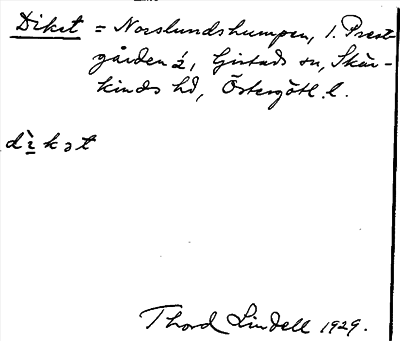 Diket = Norslundshumpen, 1. Prest-
gården 2, Gistads sn, Skär-
kinds hd, Östergötl. l.
dìkət
Thord Lindell 1929.